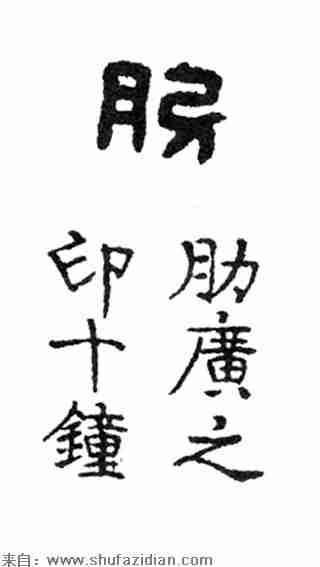 肋
肋廣之
印十鐘
来自：www.shufazidian.com